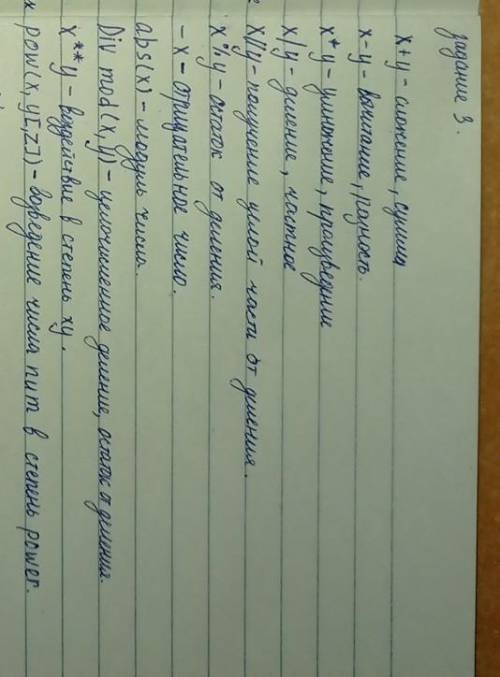 Задание 3.
x+y - сложение, сумма
x-y - вычитание, разность.
x*y - умножение, произведение
x/y - деление, частное
x//y - получение целой части от деления.
x%y - остаток от деления.
-x - отрицательное число.
abs(x) - модуль числа.
Div mod(x,y) - целочисленное деление, остаток от деления.
x**y - воздействие в степень xy.
pow(x,y[,z]) - возведение числа пит в степень power.